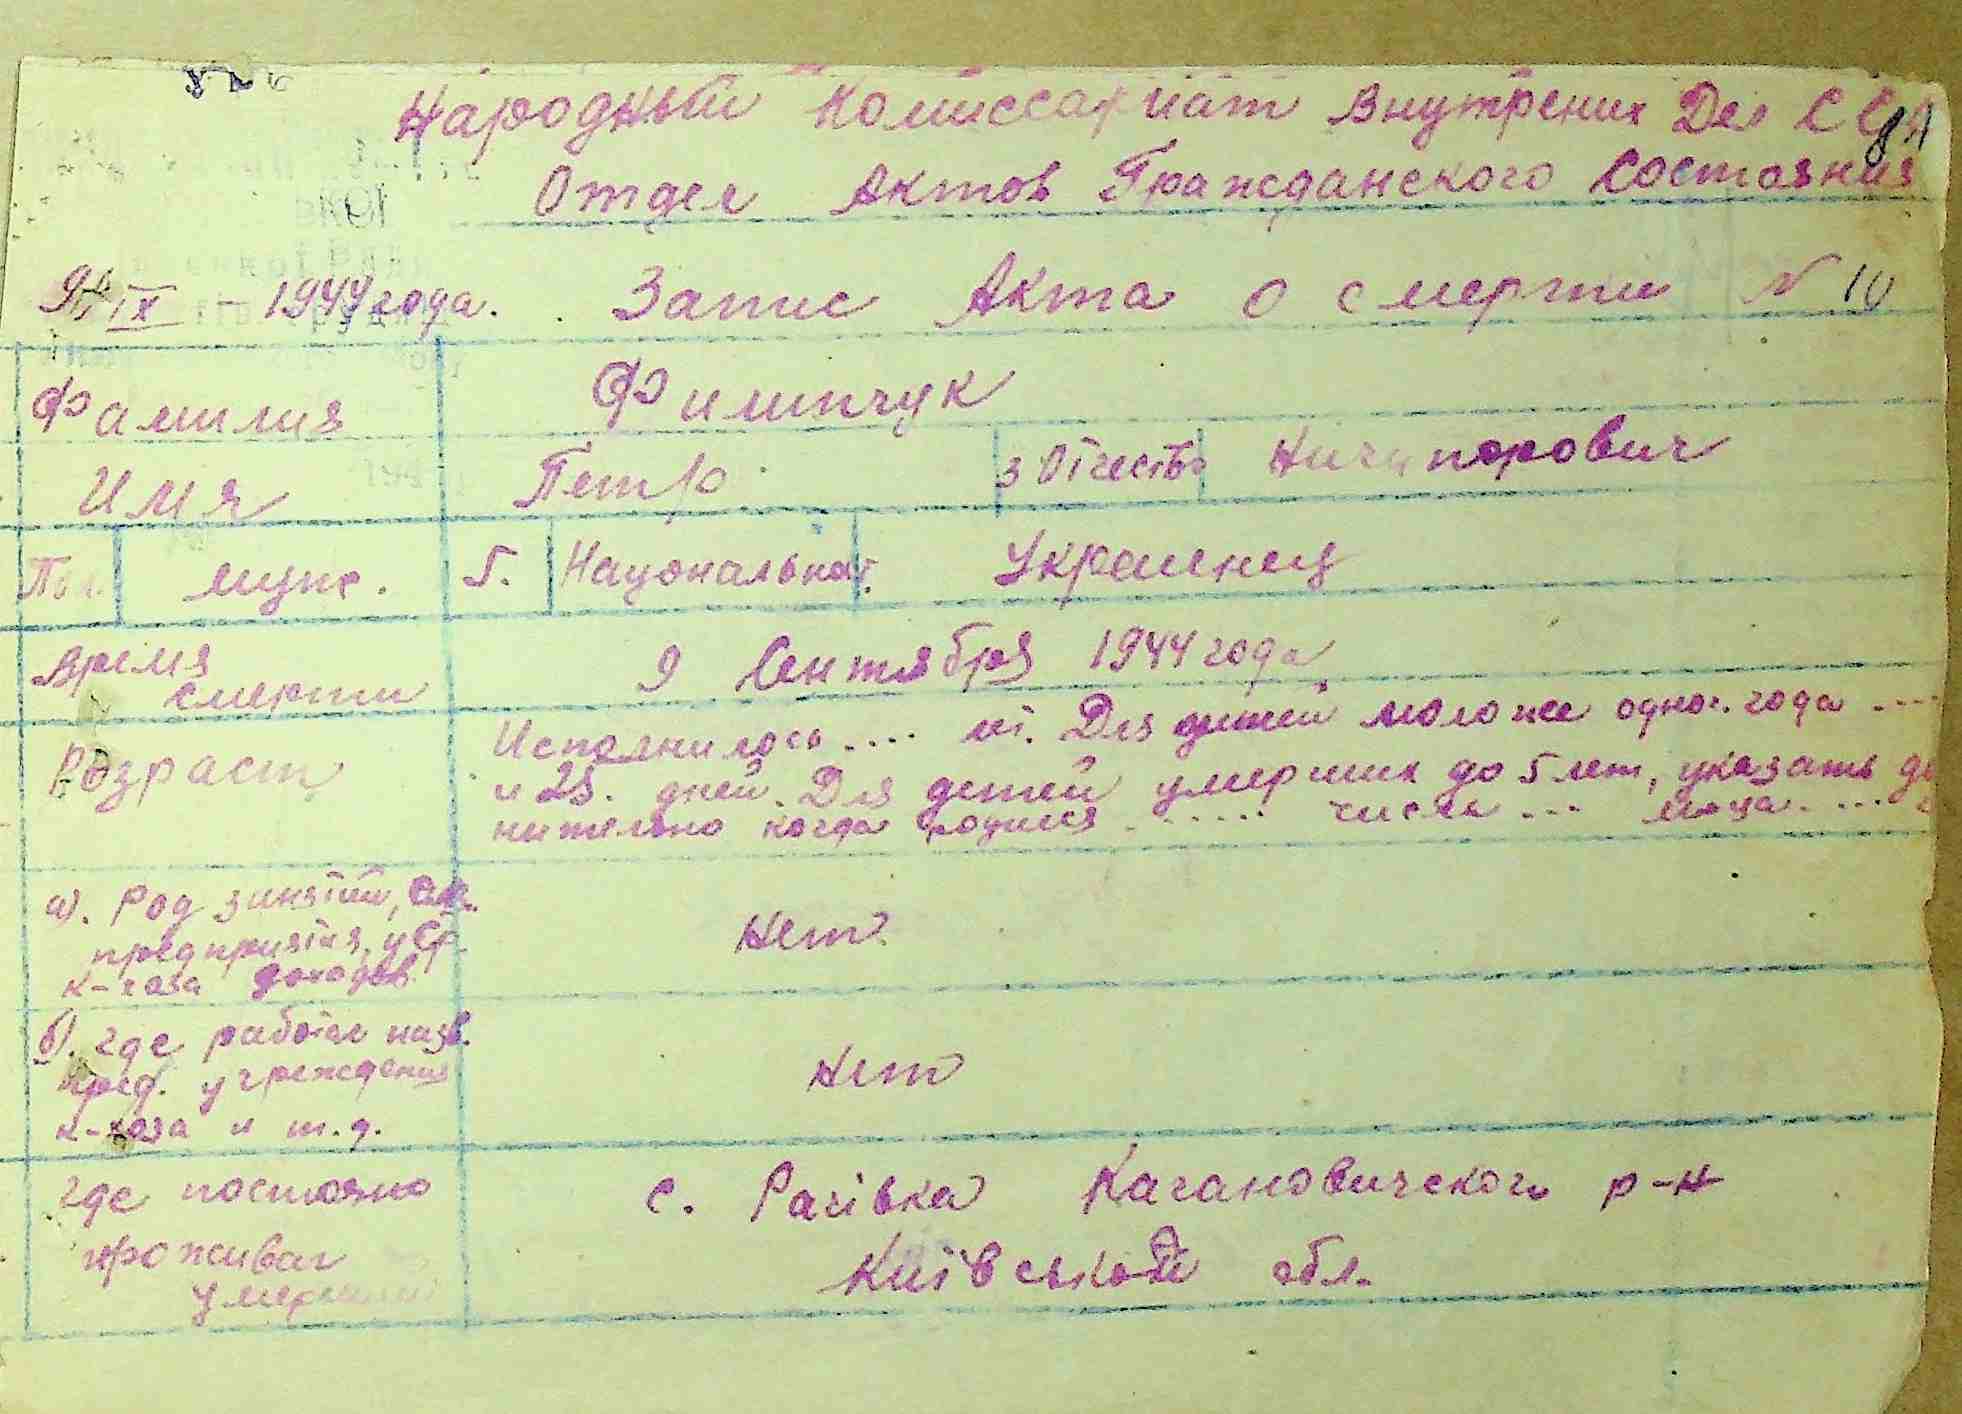 Народный Комиссариат Внутрених Дел ССР
Отдел Актов Гражданского Состояния
9/IX - 1944 года. Запис Акта о смерти N 10
Фамилия Филипчук
Имя Петро 3 Отчество Ничипорович
Пол. муж. 5. Национальност. Украинец
Время смерти 9 Сентября 1944 года
Возраст
Исполнилось .... лет. Для детей моложе одног. года ....
и 25. дней. Для детей умерших до 5 лет, указать до
нительно когда родился ...... числа ... м-ца ....
а). Род занятий,
предприятия, учр.
к-хоза доходов
Нет
б). где работал назв.
пред. учреждения
к-хоза и т.д.
Нет
где постояно
проживал
умерший
с. Рачівка Кагановичского р-н
Київськой обл.